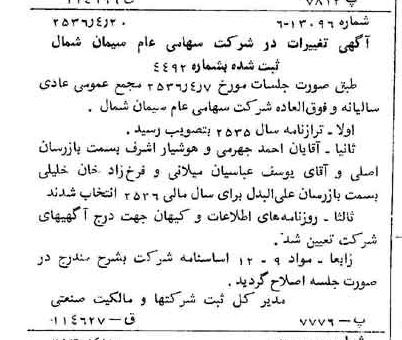 شماره ۱۳۰۹۶-۶ ۲۵۳۶/۴/۲۰
آگهی تغییرات در شرکت سهامی عام سیمان شمال
ثبت شده بشماره ۴۴۹۲
طبق صورت جلسات مورخ ۲۵۳۶/۴/۷ مجمع عمومی عادی
سالیانه و فوق‌العاده شرکت سهامی عام سیمان شمال .
اولا ـ ترازنامه سال ۲۵۳۵ بتصویب رسید .
ثانیا ـ آقایان احمد جهرمی و هوشیار اشرف بسمت بازرسان
اصلی و آقای یوسف عباسیان میلانی و فرخ‌زاد خان خلیلی
بسمت بازرسان علی‌البدل برای سال مالی ۲۵۳۶ انتخاب شدند
ثالثا ـ روزنامه‌های اطلاعات و کیهان جهت درج آگهیهای
شرکت تعیین شد .
رابعا ـ مواد ۹ - ۱۲ اساسنامه شرکت بشرح مندرج در
صورت جلسه اصلاح گردید .
مدیر کل ثبت شرکتها و مالکیت صنعتی
پ — ۷۷۷۶ ق — ۰۱۱۴۶۲۷